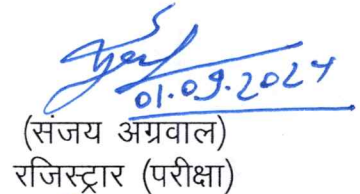 01.09.2024
(संजय अग्रवाल)
रजिस्ट्रार (परीक्षा)